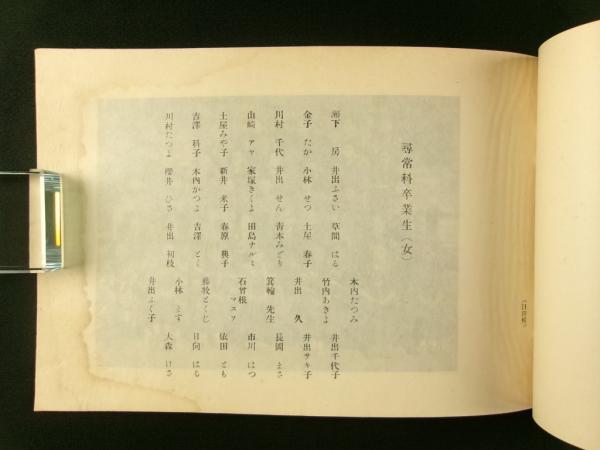 尋常科卒業生（女）
木内たつみ
下 房 井出ふさい 草間 はる 竹内あきよ 井出千代子
金子 たか 小林 せつ 土屋 春子 井出 久 井出サキ子
川村 千代 井出 せん 青木みどり 箕輪 先生 長岡 まさ
山崎 アヤ 家塚きくよ 田島ナルミ 石曾根マスヲ 市川 はつ
土屋みや子 新井 米子 春原 典子 藤牧とくじ 依田 とも
吉澤 科子 木内かつよ 吉澤 とく 小林 ます 日向 はる
川村たつよ 櫻井 ひさ 井出 初枝 井出ふく子 大森 けさ